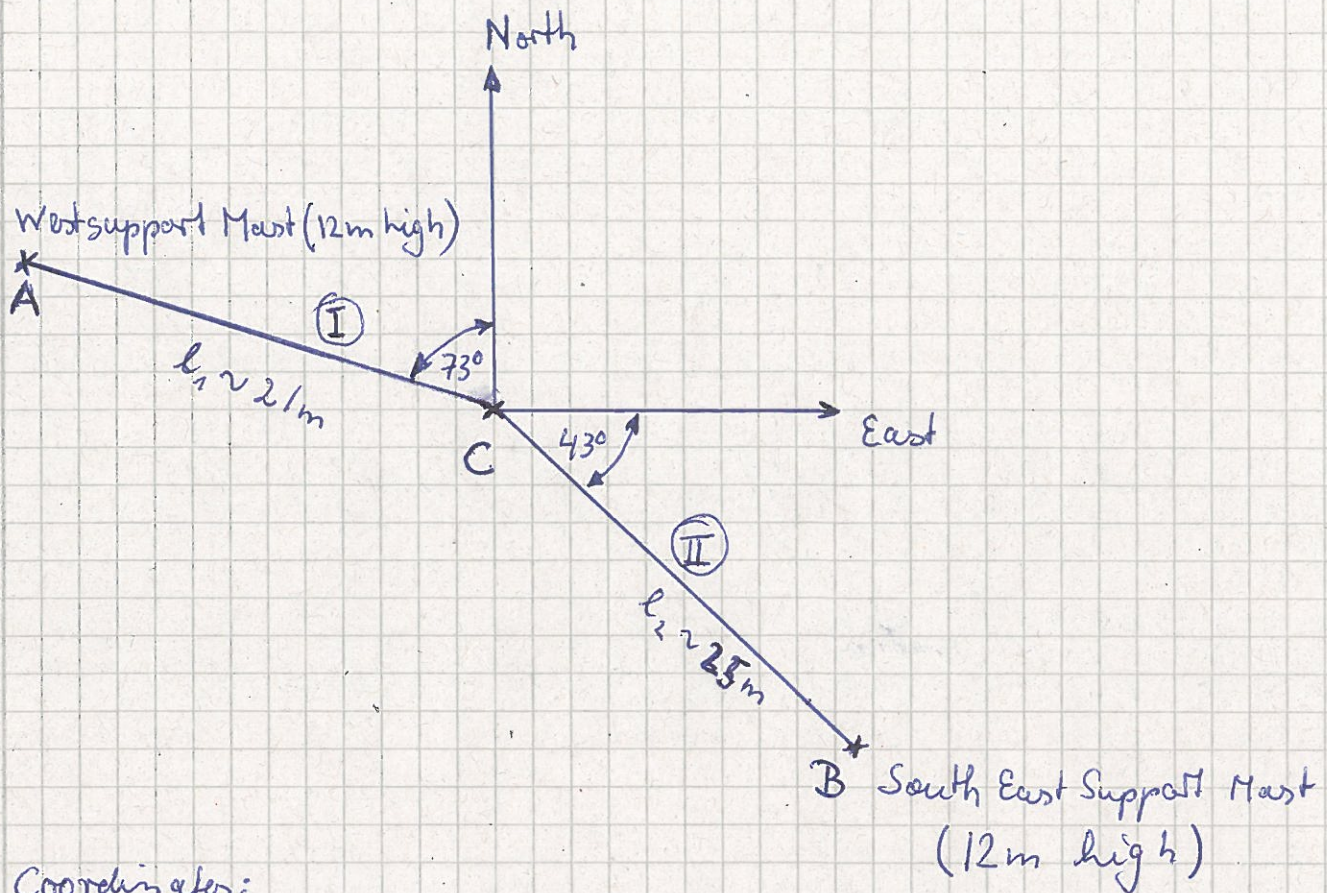 North
Westsupport Mast (12m high)
A
I
73°
l₁ ~ 21m
East
43°
C
II
l₂ ~ 25m
B South East Support Mast
(12m high)
Coordinates: